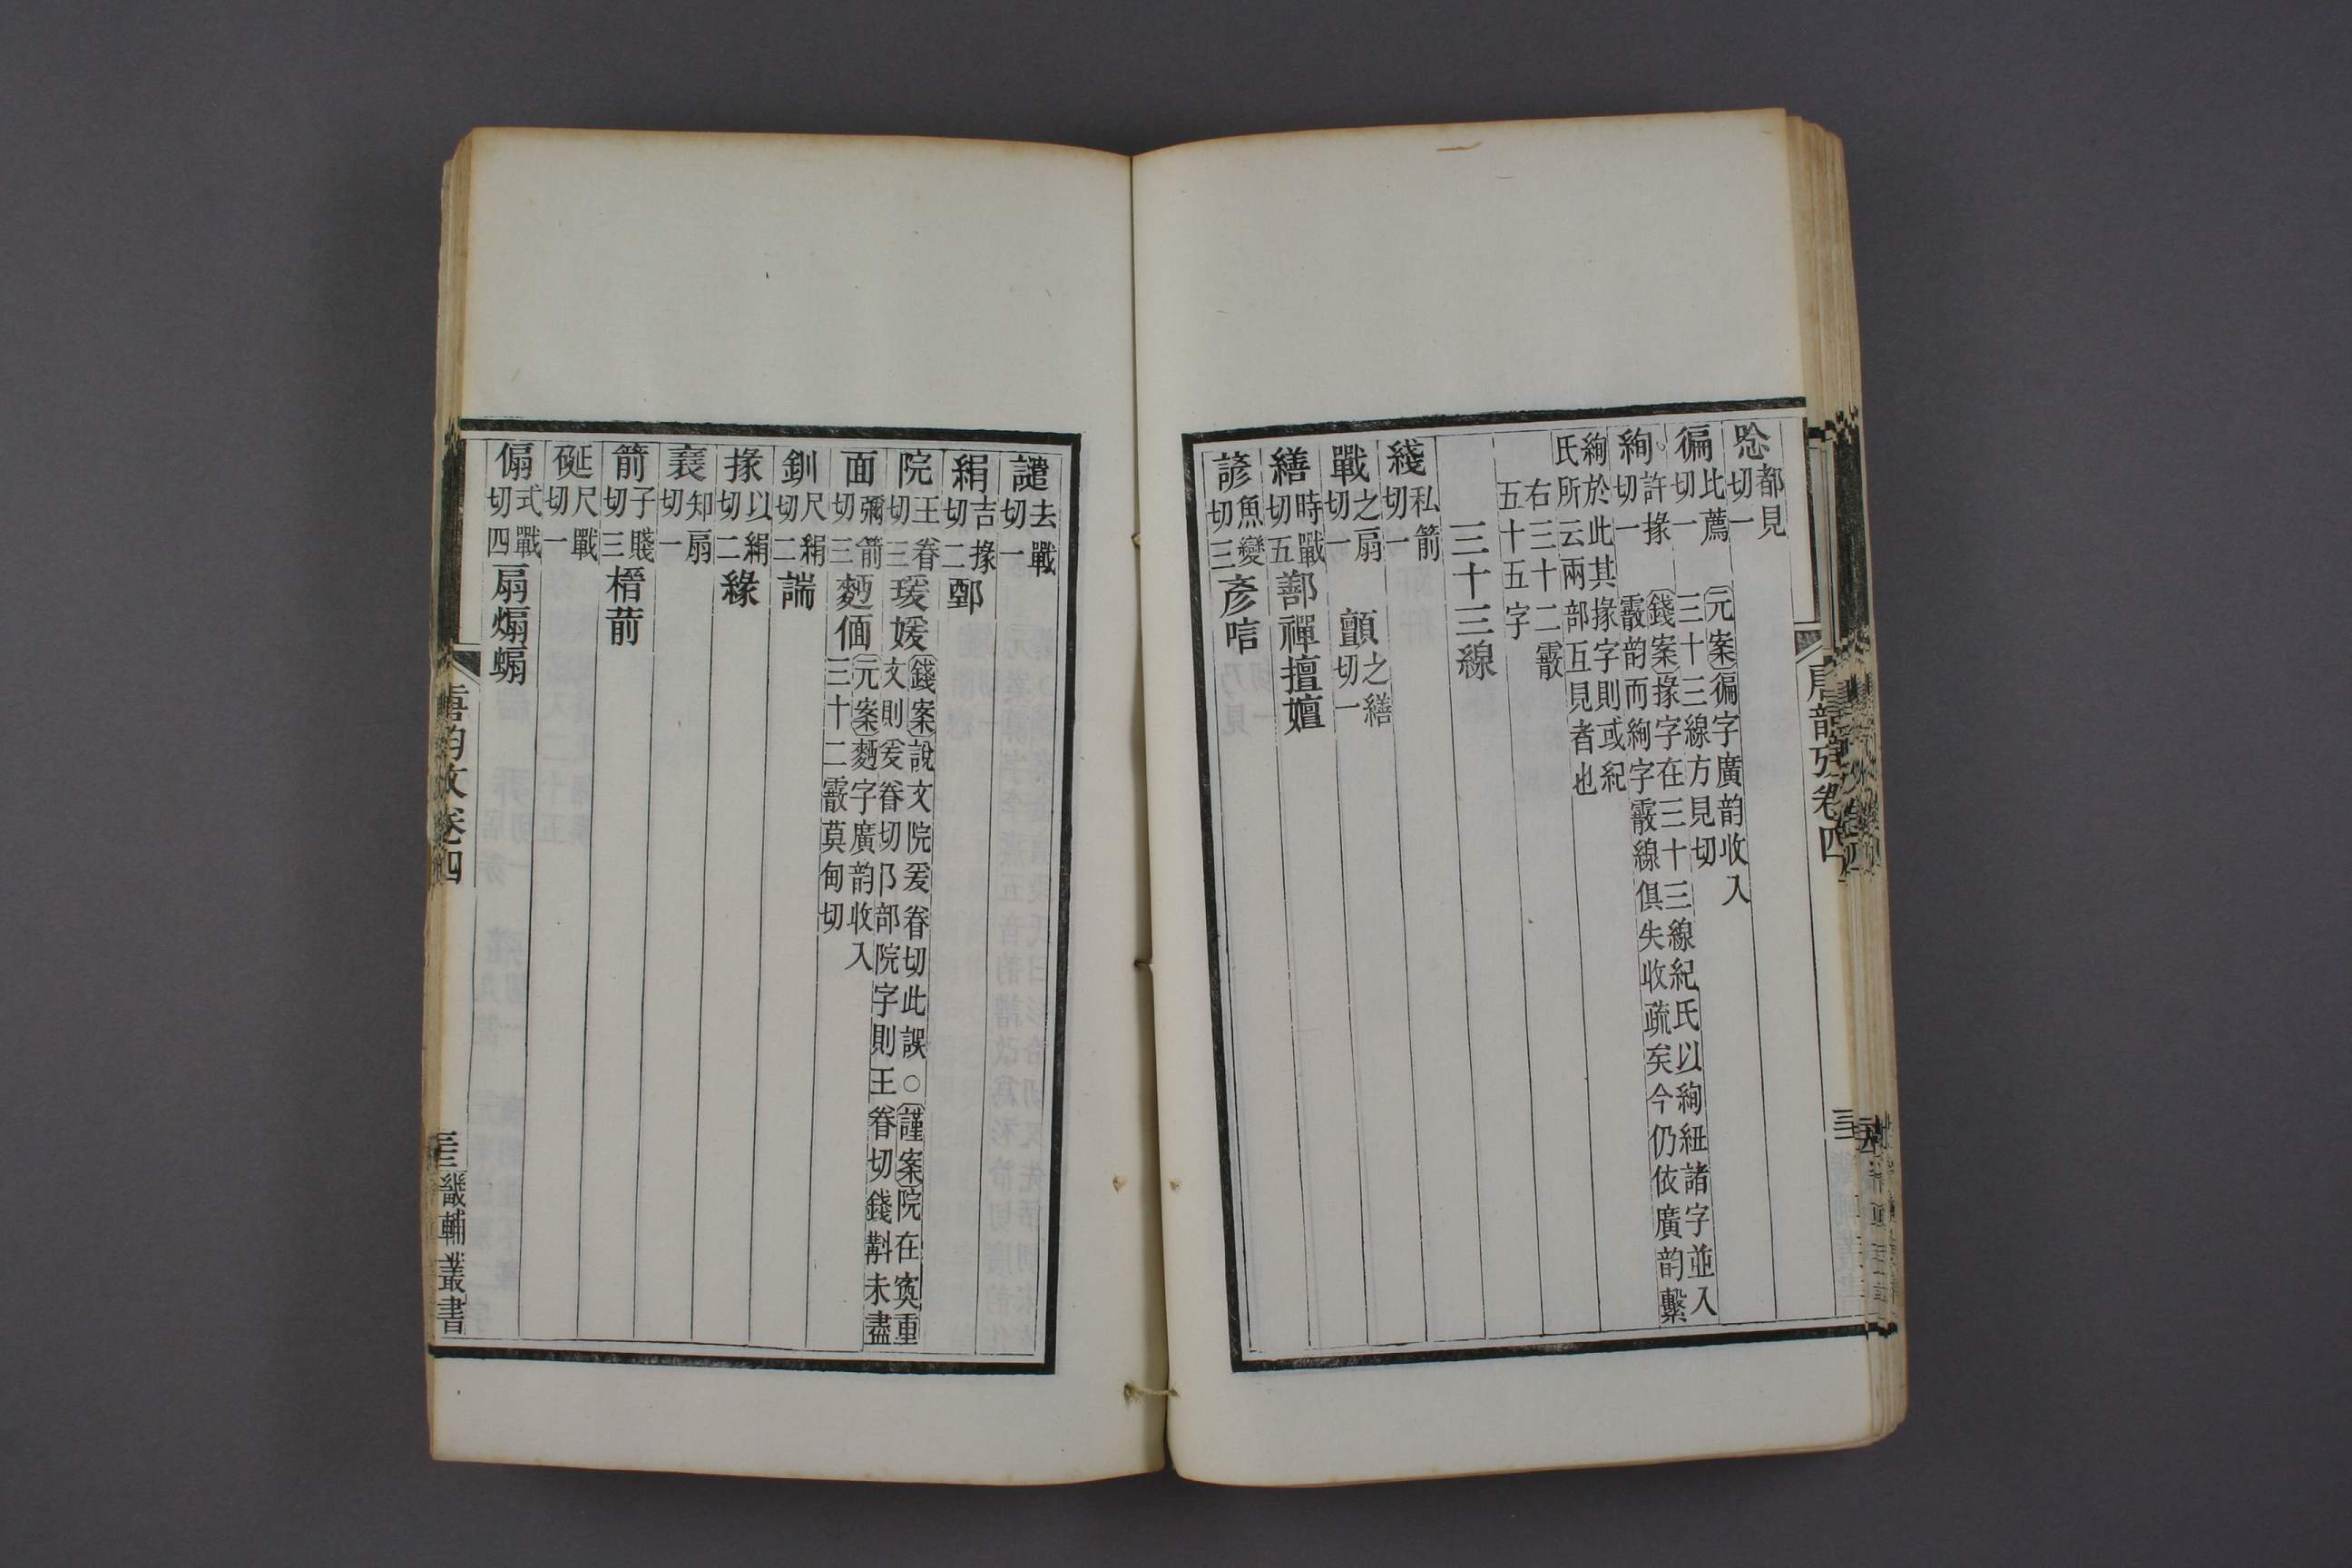 唸都見切一
徧比薦切一 元案徧字廣韵收入三十三線方見切
絢許掾切一 錢案掾字在三十三線紀氏以絢紐諸字並入霰韵而絢字霰線俱失收疏矣今仍依廣韵繫
絢於此其掾字則或紀氏所云兩部互見者也
右三十二霰五十五字
三十三線
綫私箭切一
戰之扇切一 顫之繕切一
繕時戰切五鄯禪擅嬗
諺魚變切三彥唁
唐韵攷卷四
譴去戰切一
絹吉掾切二鄄
院王眷切三瑗媛錢案說文院爰眷切此誤○謹案院在寏重文則爰眷切阝部院字則王眷切錢斠未盡
面彌箭切三麪偭元案麪字廣韵收入三十二霰莫甸切
釧尺絹切二諯
掾以絹切二緣
襄知扇切一
箭子賤切三榗葥
硟尺戰切一
傓式戰切四扇煽蝙
唐韵攷卷四
三 畿輔叢書